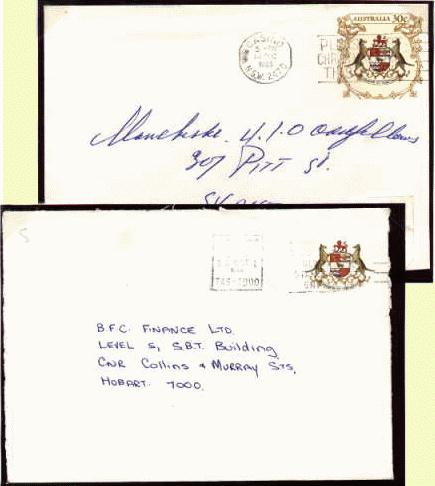 AUSTRALIA 30c
CASINO
N.S.W. 2470
PL
CHR
TH
Manchester U.I.O Oddfellows
307 PITT St.
TAS-7000
B.F.C. FINANCE LTD.
LEVEL 5, S.B.T. Building
CNR Collins & MURRAY STS,
HOBART. 7000.